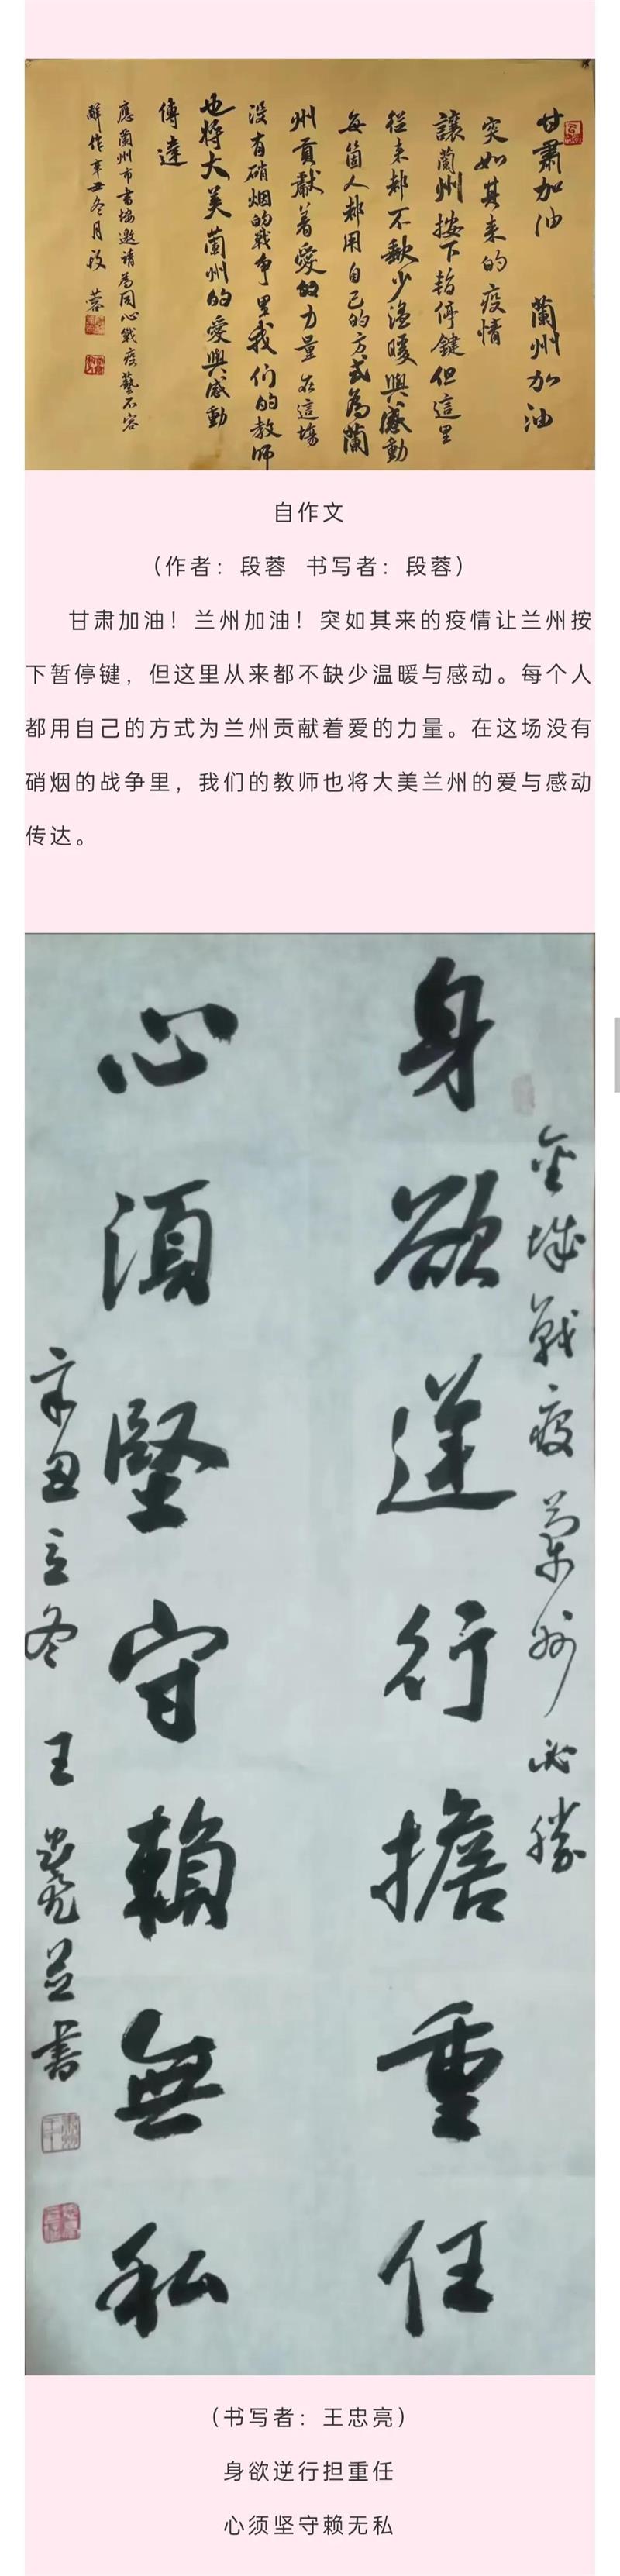 甘肅加油 蘭州加油
突如其来的疫情
讓蘭州按下暂停鍵但這里
從来都不缺少温暖與感動
每箇人都用自己的方式為蘭
州貢獻着愛的力量在這場
没有硝烟的戰争里我们的教师
也將大美蘭州的愛與感動
傳達
應蘭州市書協邀請為同心戰疫藝不容
辭作辛丑冬月段蓉
自作文
（作者：段蓉 书写者：段蓉）
甘肃加油！兰州加油！突如其来的疫情让兰州按
下暂停键，但这里从来都不缺少温暖与感动。每个人
都用自己的方式为兰州贡献着爱的力量。在这场没有
硝烟的战争里，我们的教师也将大美兰州的爱与感动
传达。
金城戰疫蘭州必勝
身欲逆行擔重任
心須堅守賴無私
辛丑立冬王忠亮並書
（书写者：王忠亮）
身欲逆行担重任
心须坚守赖无私